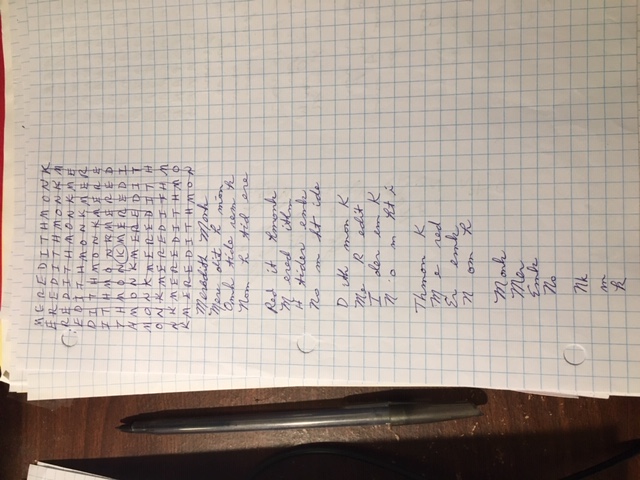 MEREDITHMONK
EREDITHMONKM
REDITHMONKME
EDITHMONKMER
DITHMONKMERE
ITHMONKMERED
THMONKMEREDI
HMONKMEREDIT
MONKMEREDITH
ONKMEREDITHM
NKMEREDITHMO
KMEREDITHMON
Meredith Monk
Mere dit h mon
Omk tide rem h
Nom h tid ere
Red it hmonk
M ered ithm
H tider emk
No m ht ide
D ith mon K
Me R edit
I der em K
N o m ht i
Thmon K
M e red
Er emk
N om h
Monk
Mer
Emk
No
Nk
m
k